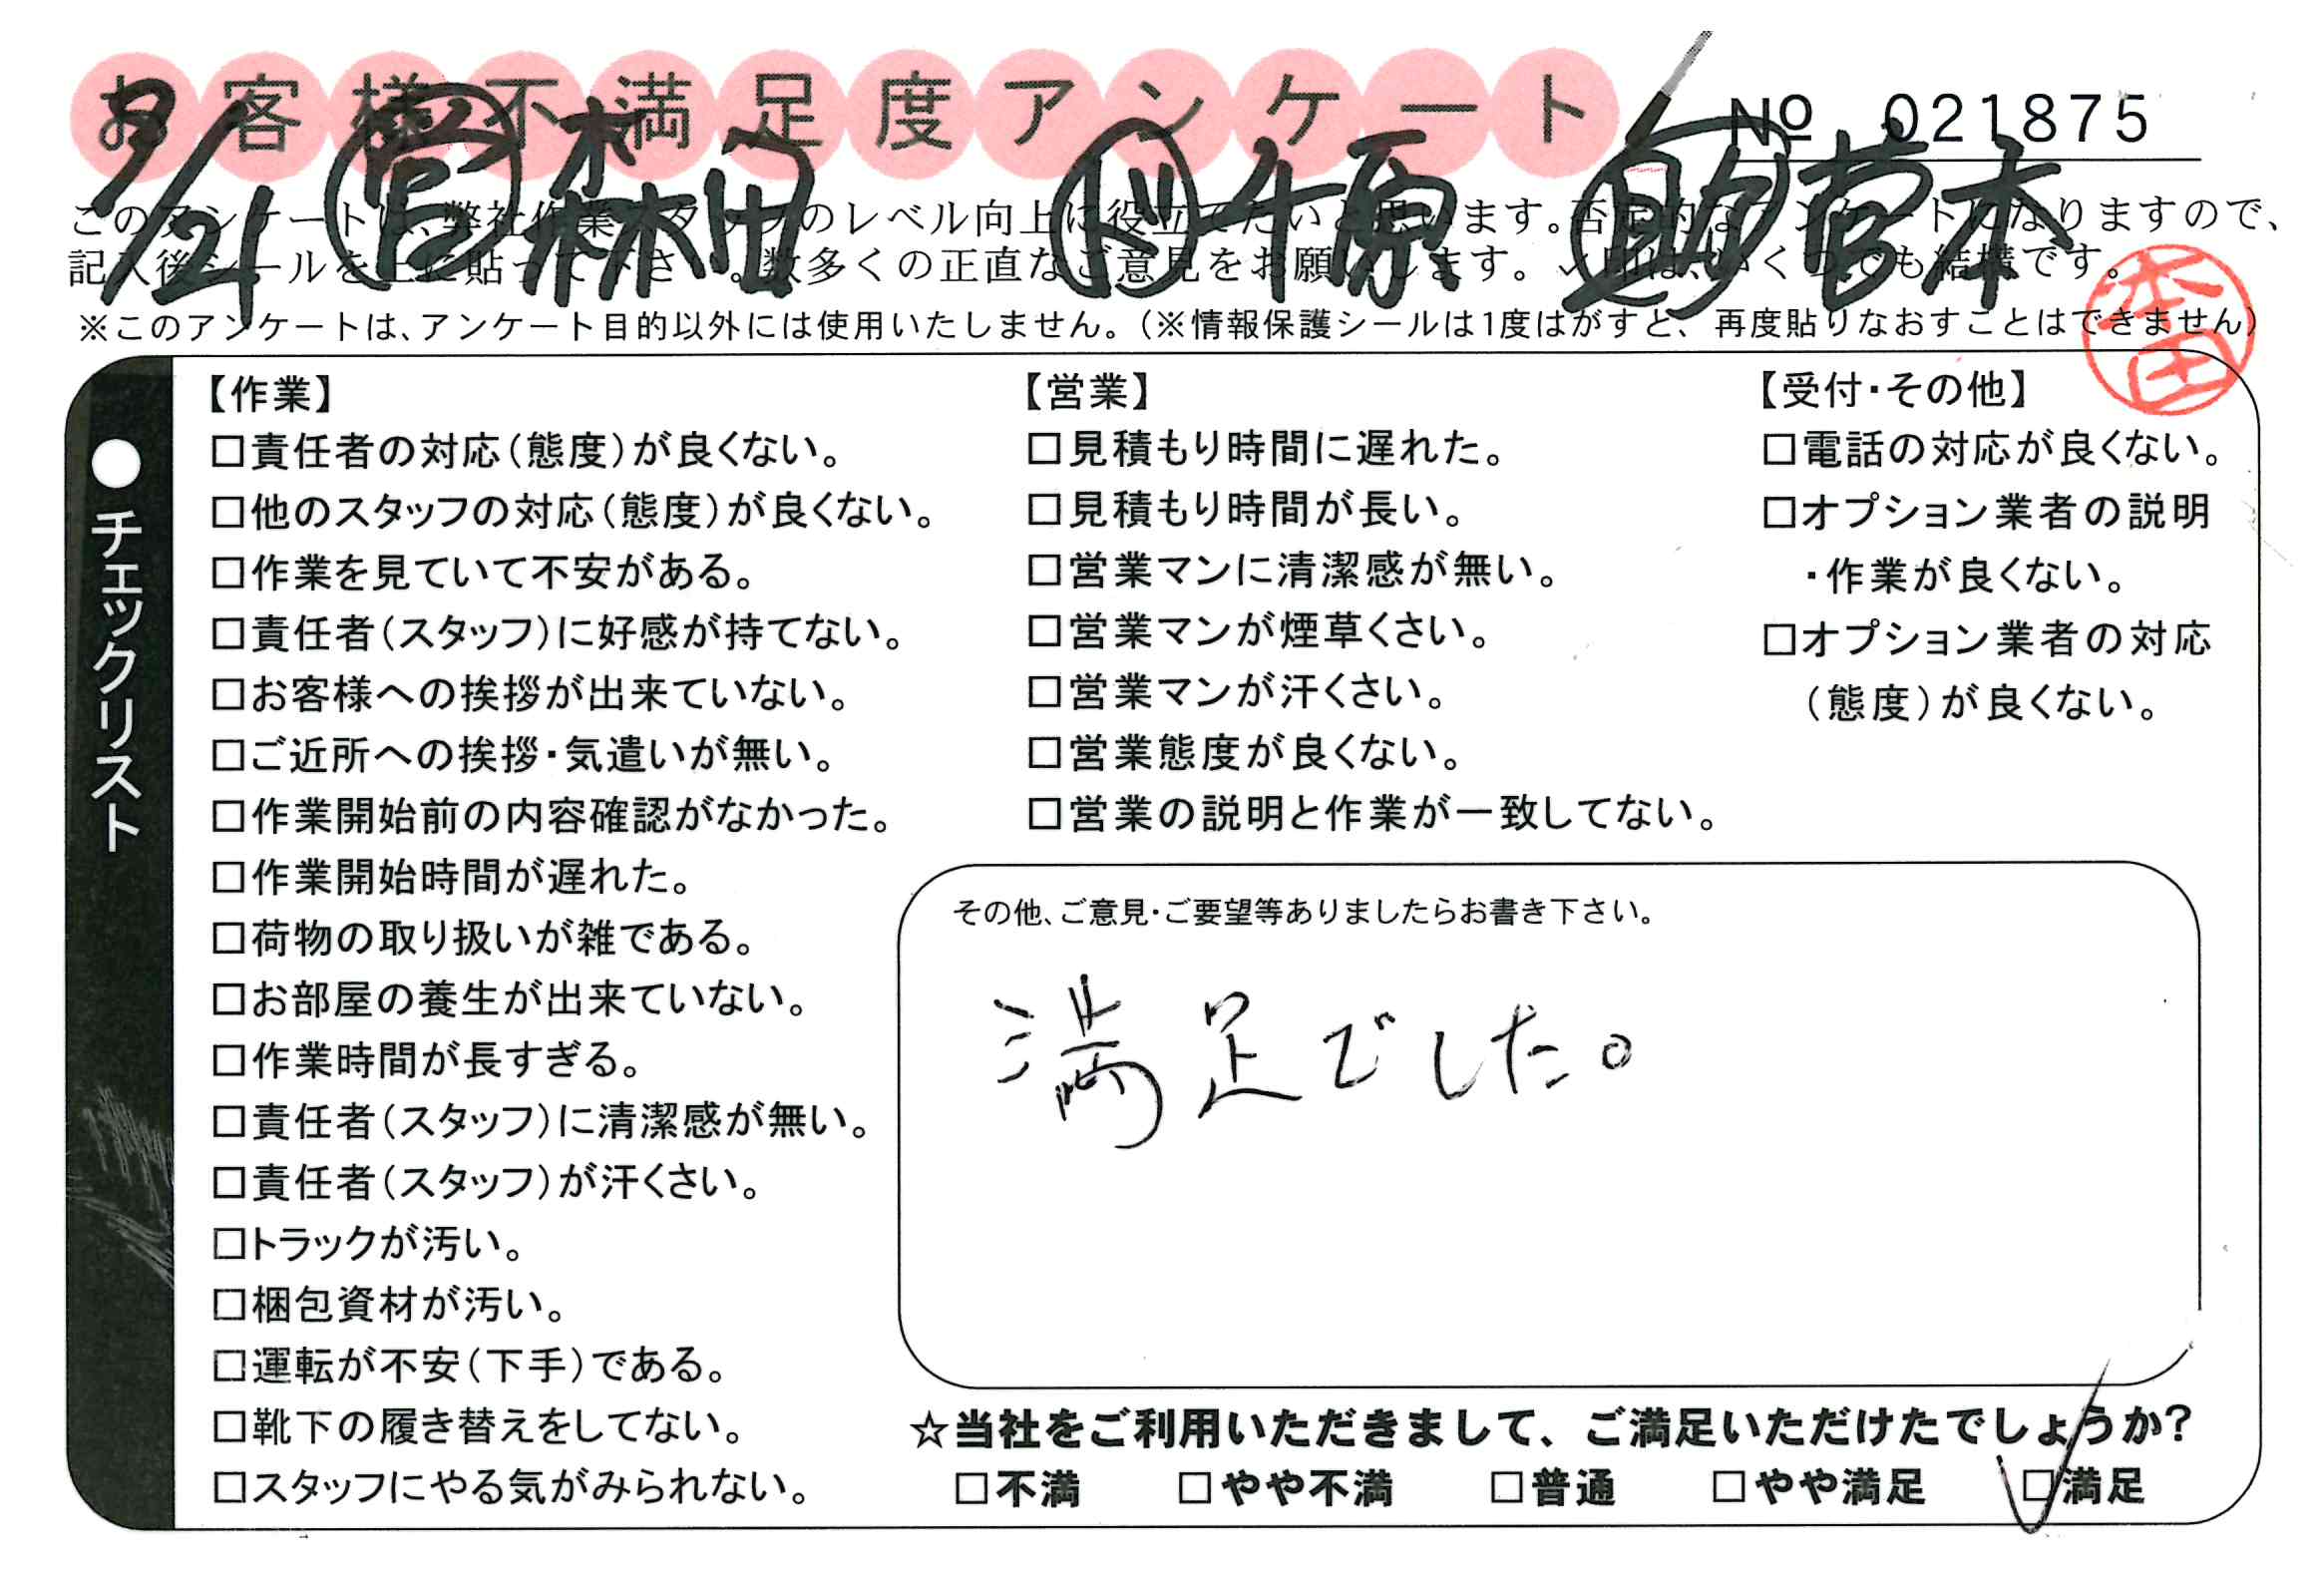 お客様不満足度アンケート
№ 021875
9/21 営 森田 作 牛原 助 菅本
このアンケートは、弊社作業スタッフのレベル向上に役立てたいと思います。否定的なアンケートになりますので、
記入後シールを上に貼って下さい。数多くの正直なご意見をお願いします。✓印は、いくつでも結構です。
※このアンケートは、アンケート目的以外には使用いたしません。(※情報保護シールは1度はがすと、再度貼りなおすことはできません)
本田
●チェックリスト
【作業】
□責任者の対応(態度)が良くない。
□他のスタッフの対応(態度)が良くない。
□作業を見ていて不安がある。
□責任者(スタッフ)に好感が持てない。
□お客様への挨拶が出来ていない。
□ご近所への挨拶・気遣いが無い。
□作業開始前の内容確認がなかった。
□作業開始時間が遅れた。
□荷物の取り扱いが雑である。
□お部屋の養生が出来ていない。
□作業時間が長すぎる。
□責任者(スタッフ)に清潔感が無い。
□責任者(スタッフ)が汗くさい。
□トラックが汚い。
□梱包資材が汚い。
□運転が不安(下手)である。
□靴下の履き替えをしてない。
□スタッフにやる気がみられない。
【営業】
□見積もり時間に遅れた。
□見積もり時間が長い。
□営業マンに清潔感が無い。
□営業マンが煙草くさい。
□営業マンが汗くさい。
□営業態度が良くない。
□営業の説明と作業が一致してない。
【受付・その他】
□電話の対応が良くない。
□オプション業者の説明
・作業が良くない。
□オプション業者の対応
(態度)が良くない。
その他、ご意見・ご要望等ありましたらお書き下さい。
満足でした。
☆当社をご利用いただきまして、ご満足いただけたでしょうか?
□不満 □やや不満 □普通 □やや満足 □満足